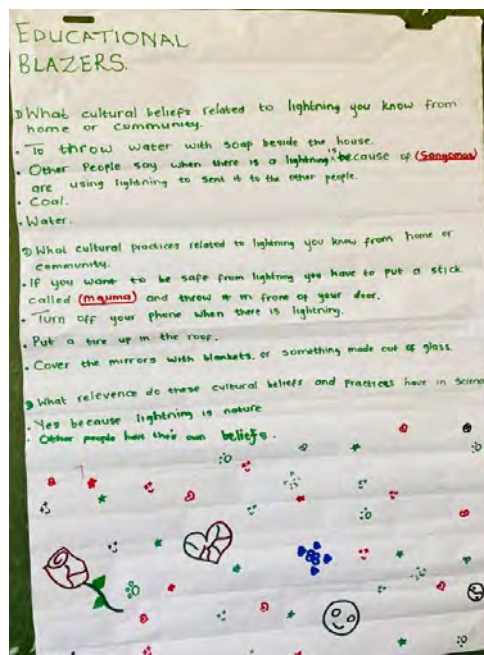 EDUCATIONAL
BLAZERS.
1) What cultural beliefs related to lightning you know from
home or community.
• To throw water with soap beside the house.
• Other People say when there is a lightning is because of (Sangomas)
are using lightning to sent it to the other people.
• Coal.
• Water.
2) What cultural practices related to lightning you know from home or
community.
• If you want to be safe from lightning you have to put a stick
called (mquma) and throw it in front of your door.
• Turn off your phone when there is lightning.
• Put a tire up in the roof.
• Cover the mirrors with blankets, or something made out of glass.
3) What relevence do these cultural beliefs and Practices have in Science
• Yes because lightning is nature
• Other people have their own beliefs.